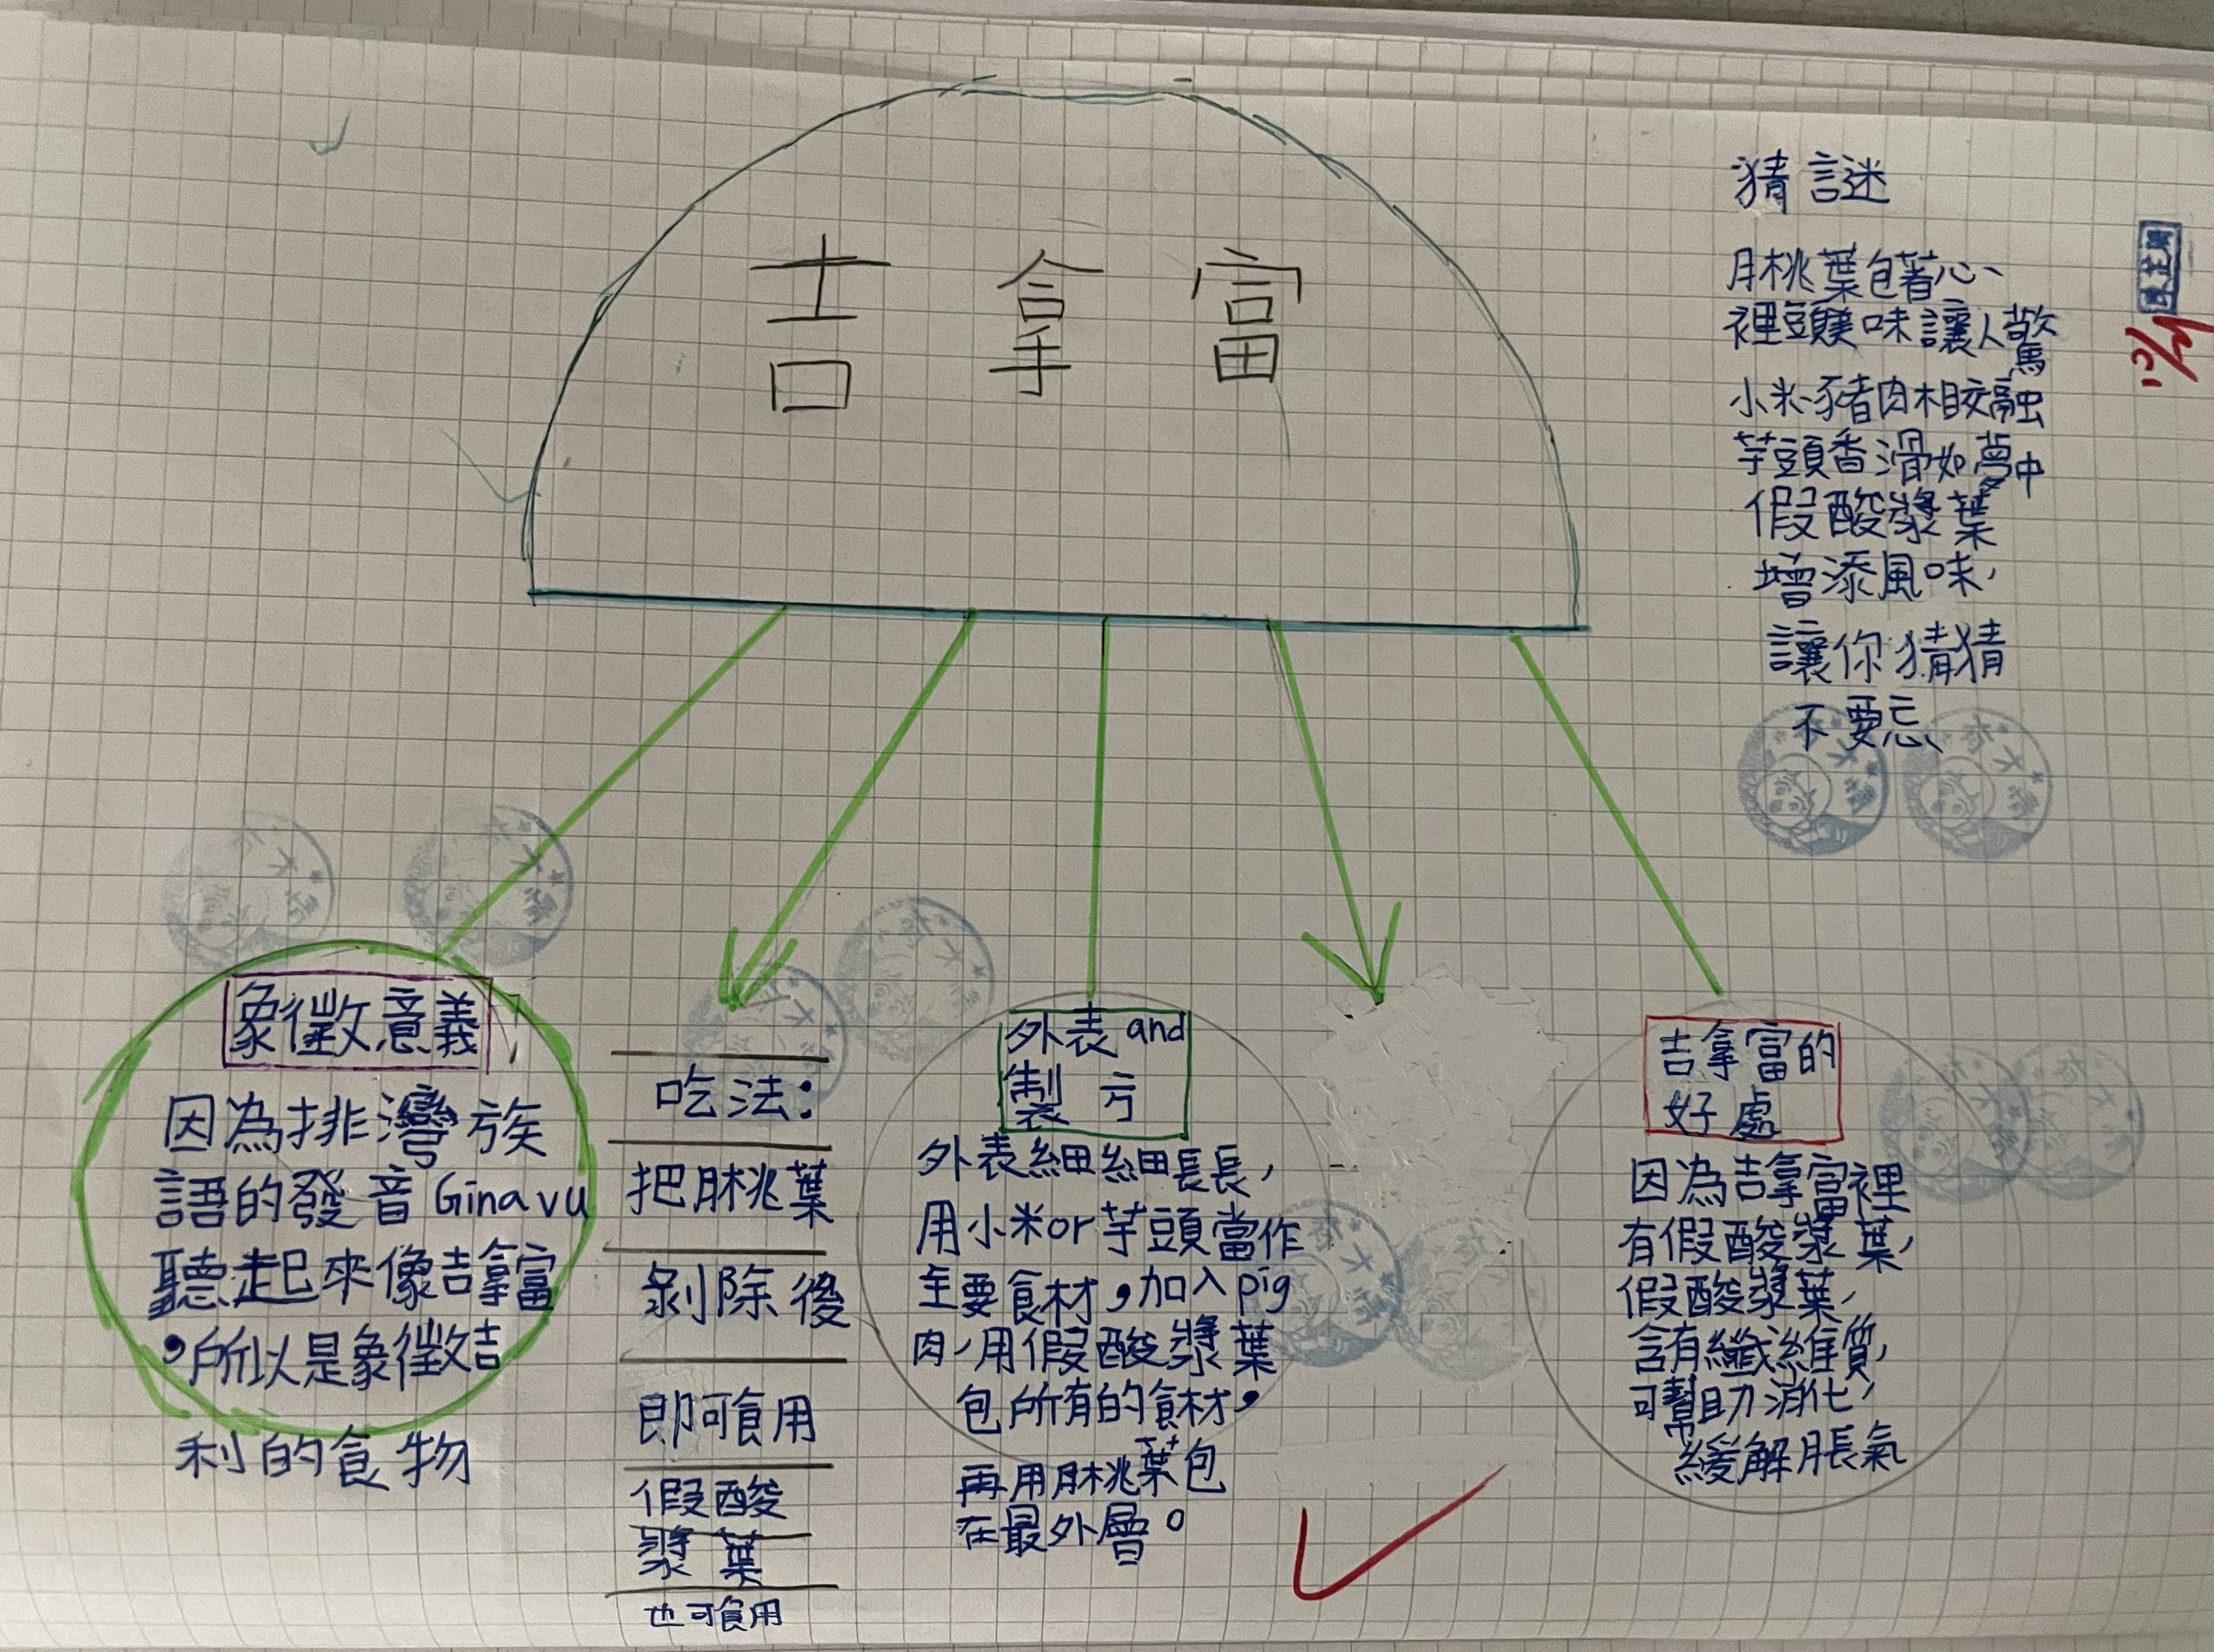 吉拿富
猜謎
月桃葉包著心、
裡頭美味讓人驚
小米豬肉相交融
芋頭香滑如夢中
假酸漿葉
增添風味,
讓你猜猜
不要忘、
象徵意義
因為排灣族
語的發音Ginavu
聽起來像吉拿富
,所以是象徵吉
利的食物
吃法:
把月桃葉
剝除後
即可食用
假酸
漿葉
也可食用
外表and
製方
外表細細長長,
用小米or芋頭當作
主要食材,加入pig
肉,用假酸漿葉
包所有的食材,
再用月桃葉包
在最外層。
吉拿富的
好處
因為吉拿富裡
有假酸漿葉,
假酸漿葉,
含有纖維質,
可幫助消化,
緩解脹氣